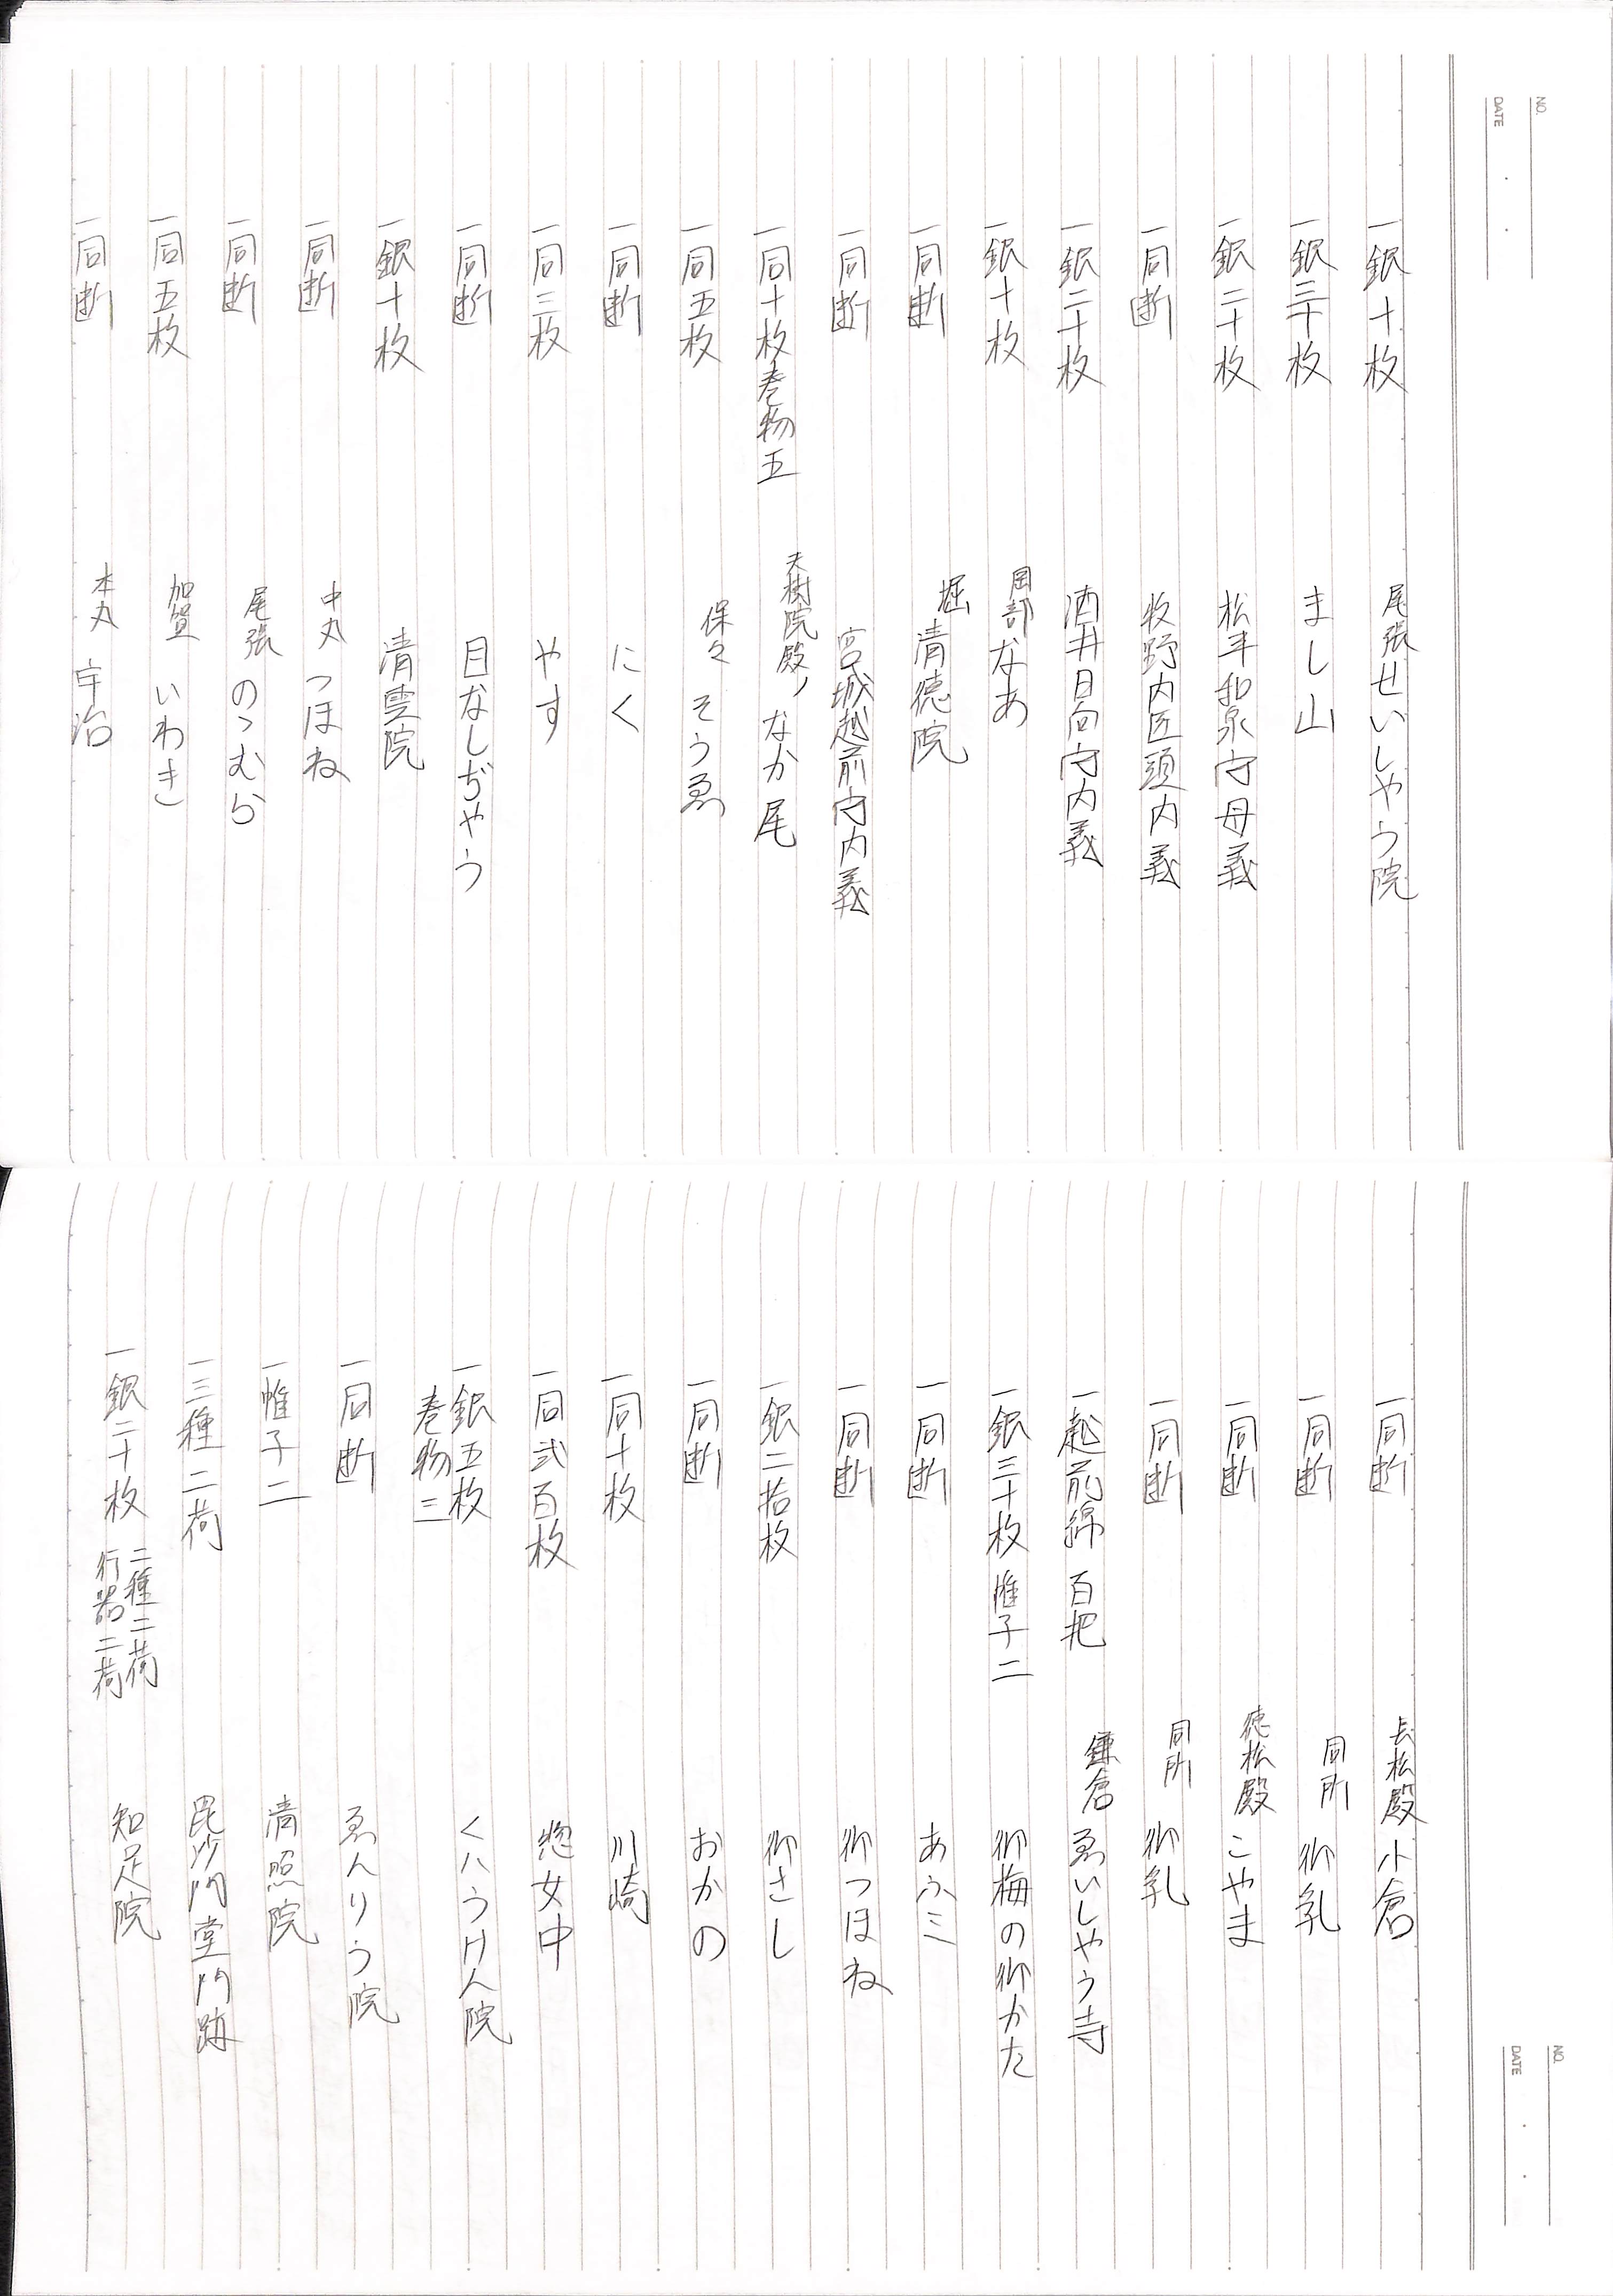 NO.
DATE
一銀十枚 尾張せいしやう院
一銀三十枚 まし山
一銀二十枚 松平和泉守母義
一同断 牧野内匠頭内義
一銀二十枚 酒井日向守内義
一銀十枚 岡部なあ
一同断 堀清徳院
一同断 宮城越前守内義
一同十枚巻物五 天樹院殿ノなか尾
一同五枚 保々そうゑ
一同断 にく
一同三枚 やす
一同断 目なしぢやう
一銀十枚 清雲院
一同断 中丸つほね
一同断 尾張のゝむら
一同五枚 加賀いわき
一同断 本丸宇治
NO.
DATE
一同断 長松殿小倉
一同断 同所御乳
一同断 徳松殿こやま
一同断 同所御乳
一越前綿百把 鎌倉ゑいしやう寺
一銀三十枚帷子二 御梅の御かた
一同断 あふミ
一同断 御つほね
一銀二拾枚 御さし
一同断 おかの
一同十枚 川崎
一同弐百枚 惣女中
一銀五枚 くハうけん院
巻物三
一同断 ゑんりう院
一帷子二 清照院
一三種二荷 毘沙門堂門跡
一銀二十枚 二種二荷 知足院
行器二荷